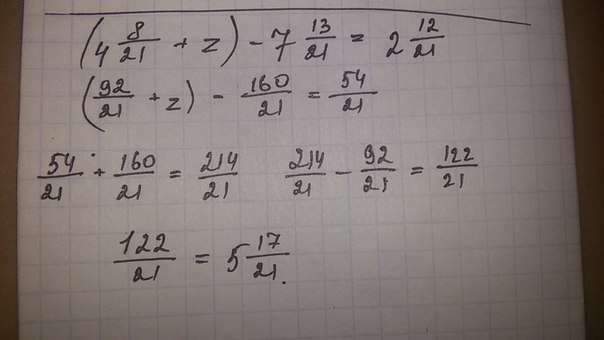 (4 8/21 + z) - 7 13/21 = 2 12/21
(92/21 + z) - 160/21 = 54/21
54/21 + 160/21 = 214/21   214/21 - 92/21 = 122/21
122/21 = 5 17/21.